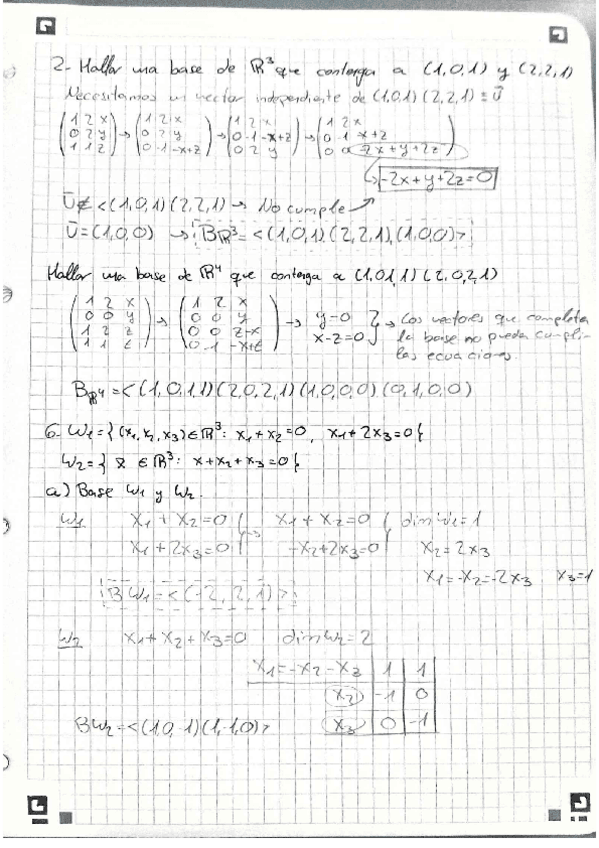 2- Hallar una base de ℝ³ que contenga a (1,0,1) y (2,2,1)
Necesitamos un vector independiente de (1,0,1) (2,2,1) = ū
(1 2 x / 0 2 y / 1 1 z) → (1 2 x / 0 2 y / 0 -1 -x+z) → (1 2 x / 0 -1 -x+z / 0 2 y) → (1 2 x / 0 -1 -x+z / 0 0 -2x+y+2z)
-2x+y+2z=0
ū ∉ <(1,0,1)(2,2,1) → No cumple
ū=(1,0,0) → Bℝ³=<(1,0,1)(2,2,1),(1,0,0)>
Hallar una base de ℝ⁴ que contenga a (1,0,1,1) (2,0,2,1)
(1 2 x / 0 0 y / 1 2 z / 1 1 t) → (1 2 x / 0 0 y / 0 0 z-x / 0 -1 -x+t) → y=0
x-z=0 } → Los vectores que completen
la base no pueden cumplir
las ecuaciones.
Bℝ⁴=<(1,0,1,1)(2,0,2,1)(1,0,0,0)(0,1,0,0)
6- W₁={(x₁,x₂,x₃)∈ℝ³: x₁+x₂=0, x₁+2x₃=0}
W₂={ x̄ ∈ℝ³: x+x₂+x₃=0}
a) Base W₁ y W₂.
W₁ x₁+x₂=0 } → x₁+x₂=0 } dim W₁=1
x₁+2x₃=0 -x₂+2x₃=0 x₂=2x₃
x₁=-x₂=-2x₃ x₃=1
BW₁=<(-2,2,1)>
W₂ x₁+x₂+x₃=0 dim W₂=2
x₁=-x₂-x₃ 1 1
x₂ -1 0
BW₂=<(1,0,-1)(1,-1,0)> x₃ 0 -1